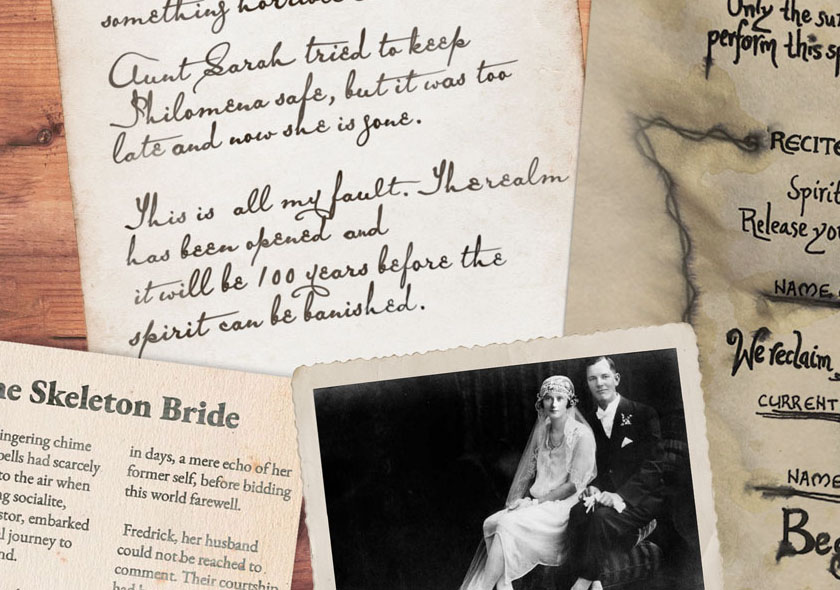 something
Aunt Sarah tried to keep
Philomena safe, but it was too
late and now she is gone.
This is all my fault. The realm
has been opened and
it will be 100 years before the
spirit can be banished.
Skeleton Bride
chime
bells had scarcely
to the air when
socialite,
embarked
journey to
in days, a mere echo of her
former self, before bidding
this world farewell.
Fredrick, her husband
could not be reached to
comment. Their courtship
Only the
perform this
RECITE
Release
NAME
We reclaim
CURRENT
NAME